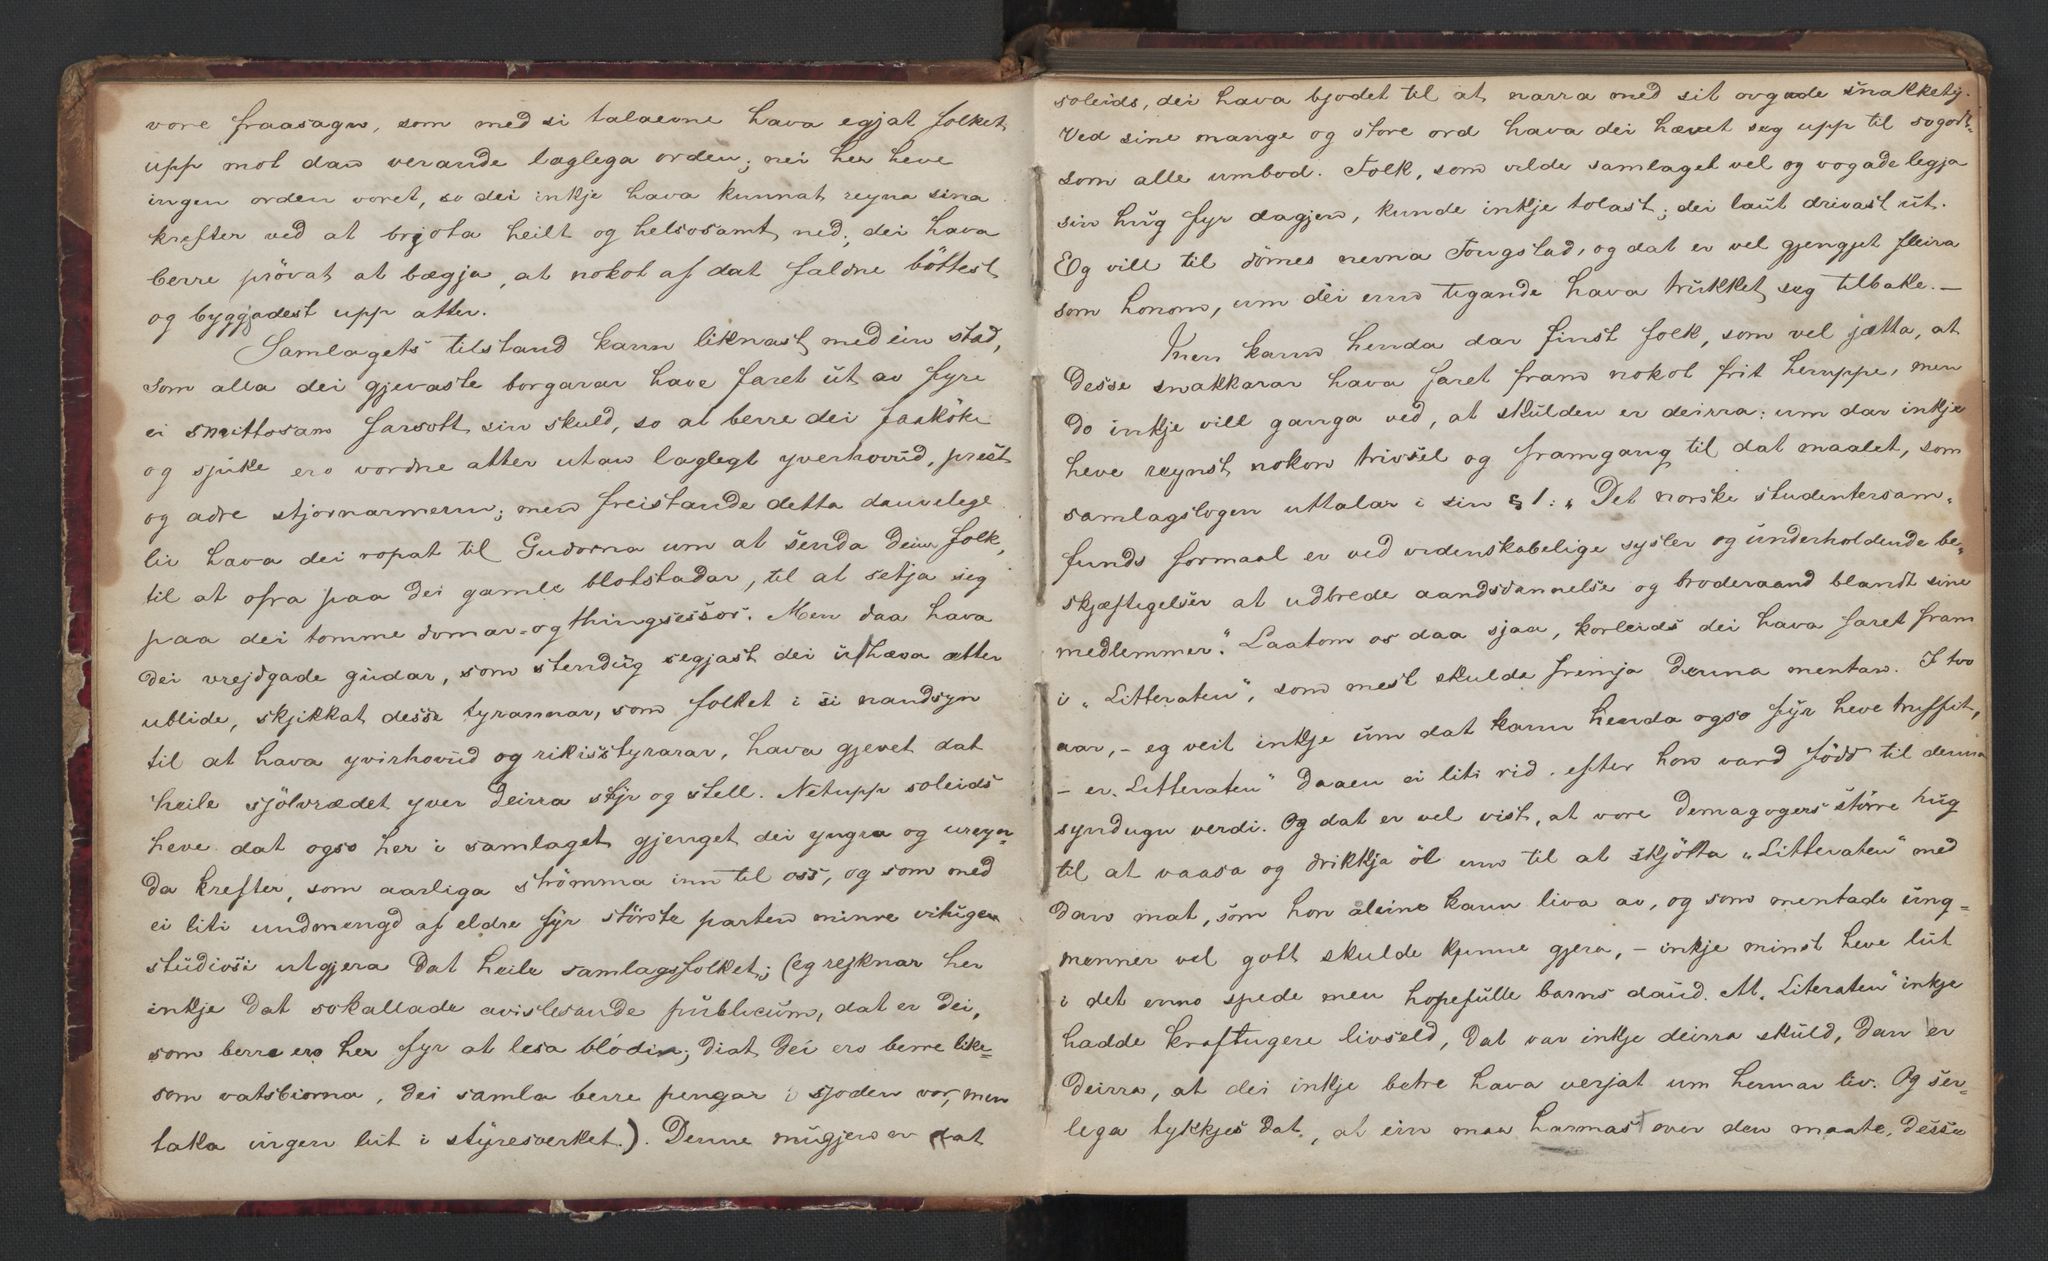 vore fraasagn, som med si talaevne hava egjat folket
upp mot dan verande laglega orden; nei her heve
ingen orden voret, so dei inkje hava kunnat reyna sina
krefter ved at brjota heilt og helsosamt ned; dei hava
berre prövat at bægja, at nokot af dat faldne böttest
og byggjadest upp atter.
Samlagets tilstand kann liknast med ein stad,
som alla dei gjevaste borgarar have faret ut av fyre
ei smittosam farsott sin skuld, so at berre dei faaköke
og sjuke ero vordne atter utan laglegt yverhovud, prest
og adre stjornarmenn; men freistande detta dauvelege
liv hava dei ropat til Gudorna um at senda deim folk,
til at ofra paa dei gamle blotstadar, til at setja seg
paa dei tomme domar- og thingsessor. Men daa hava
dei vrejdgade gudar, som stendug segjast dei u hava ætter
ublide, skjikkat desse tyrannar, som folket i si naudsyn
til at hava yvirhovud og rikisstyrarar, hava gjevet dat
heile sjölvrædet yver deirra styr og stell. Netupp soleids
heve dat ogso her i samlaget gjenget dei yngra og ureyn-
da krefter, som aarliga strömma inn til oss, og som med
ei liti undmengd af eldre fyr störste parten minne vitugen
studiosi utgjera dat heile samlagsfolket; (eg rejknar her
inkje dat sokallade avislesande publicum, dat er dei,
som berre ero her fyr at lesa blödin; diat dei ero berre like-
som vatsbiorna, dei samla berre pengar i sjoden vor, men
taka ingen lut i styresverket.). Denne mugjen er dat
soleids, dei hava bjodet til at narra med sit ovgude snakkety.
Ved sine mange og store ord hava dei hævet seg upp til sogodt-
som alle umbod. Folk, som vilde samlaget vel og vogade legja
sin hug fyr dagjen, kunde inkje tolast; dei laut drivast ut.
Eg vill til dömes nevna Tongstad, og dat er vel gjengjet fleira
som honom, um dei enn tigande hava trukket seg tilbake. —
Men kann henda dar finst folk, som vel jætta, at
desse snakkarar hava faret fram nokot frit heruppe, men
do inkje vill ganga ved, at skulden er deirra; um dar inkje
heve reynst nokon trivsel og framgang til dat maalet, som
samlagslogen uttalar i sin § 1: „Det norske studentersam-
funds formaal er ved videnskabelige sysler og underholdende be-
skjæftigelser at udbrede aandsdannelse og broderaand blandt sine
medlemmer". Laatom os daa sjaa, korleids dei hava faret fram
i „Litteraten", som mest skulda fremja denna mentan. I tvo
aar, – eg veit inkje um dat kann henda ogso fyr heve truffit,
– er „Litteraten" daaen ei liti rid efter hon vard född til denna
syndugu verdi. Og dat er vel vist, at vore demagogers större hug
til at vaasa og drikkja öl enn til at skjötta „Litteraten" med
dan mat, som hon aleine kann liva av, og som mentade ung-
menner vel gott skulde kunne gjera, – inkje minst heve lut
i det enno spede men hopefulle barns daud. At „Literaten" inkje
hadde kraftugere livseld, dat var inkje deirra skuld, dan er
deirra, at dei inkje betre hava verjat um hennar liv. Og ser-
lega tykkjes dat, at ein maa harmast over den maate, desse